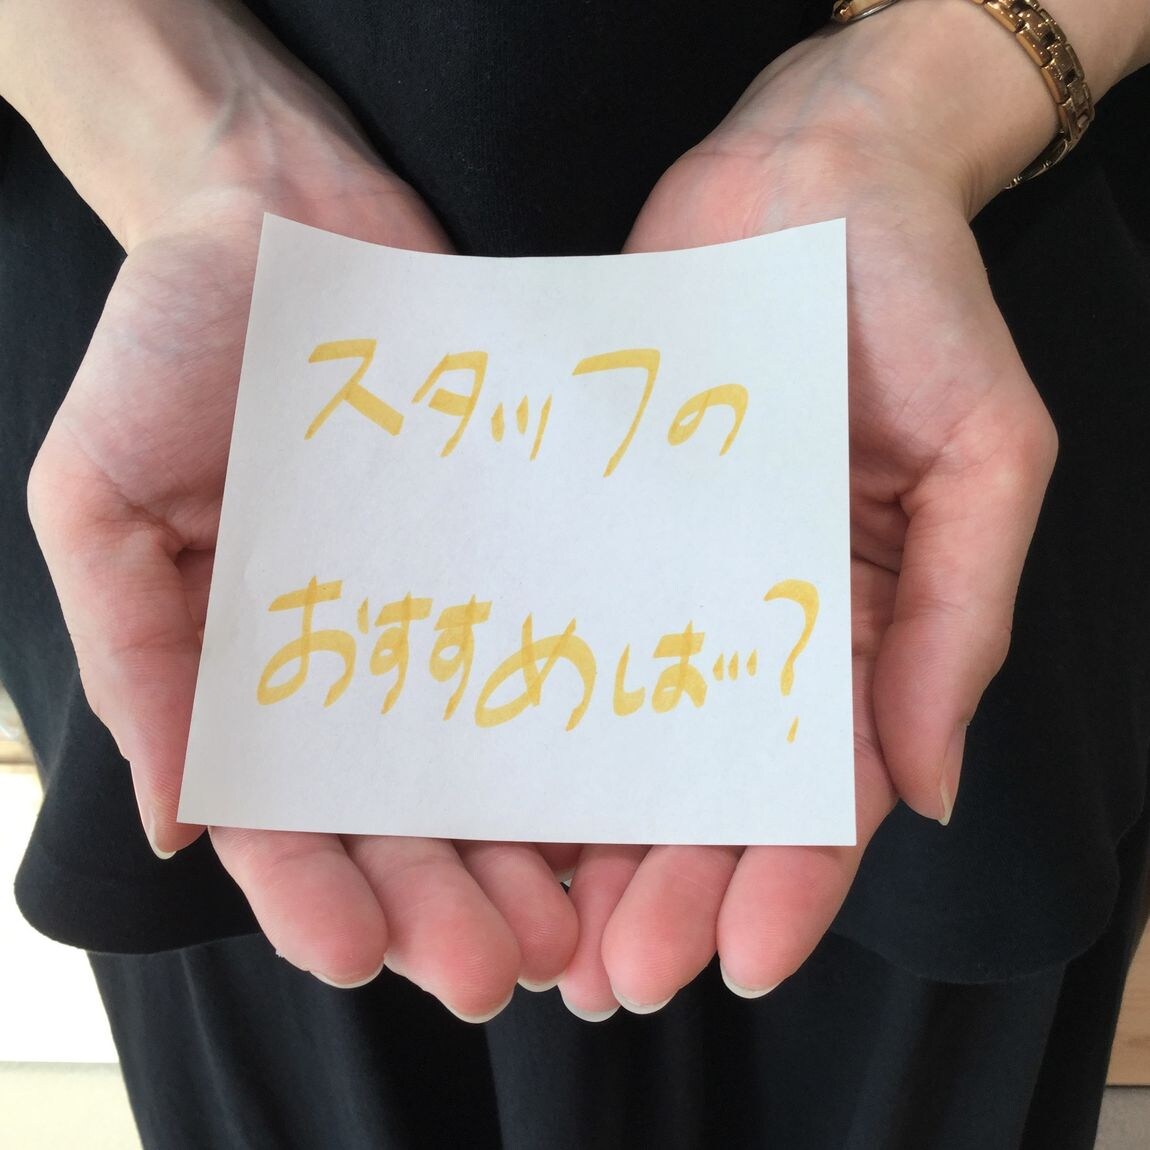 スタッフの
おすすめは…?